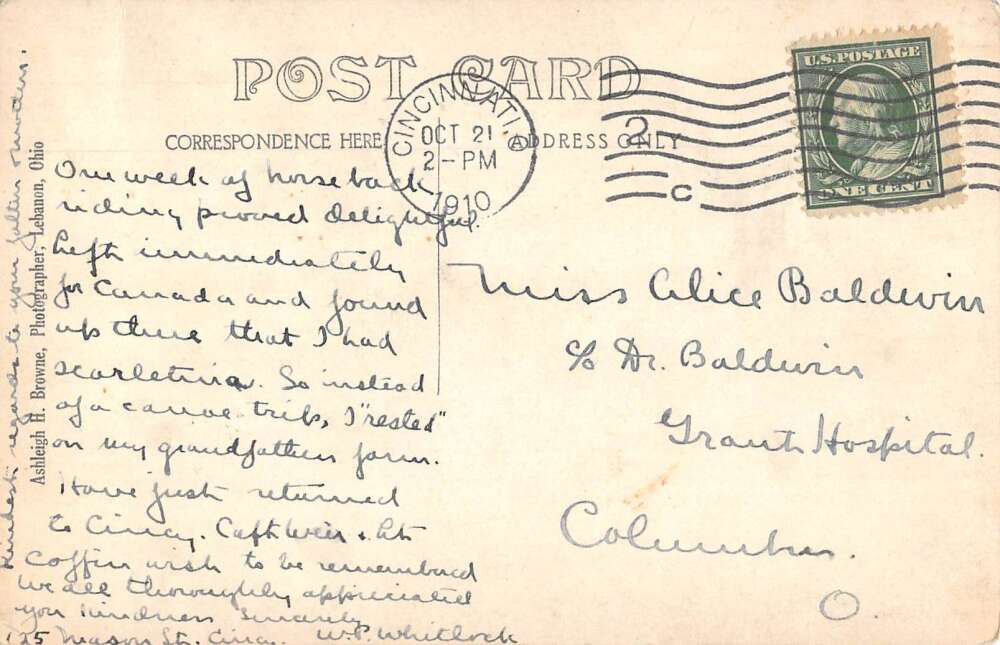 POST CARD
CORRESPONDENCE HERE
ADDRESS ONLY
CINCINNATI, O
OCT 21
2-PM
1910
2
C
U.S. POSTAGE
ONE CENT
One week of horseback
riding proved delightful.
Left immediately
for Canada and found
up there that I had
scarletina. So instead
of a canoe trip, I "rested"
on my grandfathers farm.
Have just returned
to Cincy. Capt Weir + Lt
Coffin wish to be remembered
We all thoroughly appreciated
your kindness Sincerely
W.P. Whitlock
125 Mason St. Cinci.
Kindest regards to your father & mother.
Ashleigh H. Browne, Photographer, Lebanon, Ohio
Miss Alice Baldwin
c/o Dr. Baldwin
Grant Hospital.
Columbus.
O.